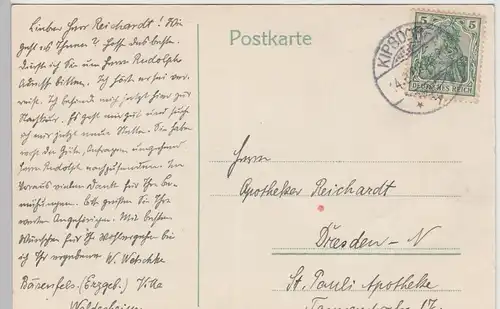 Lieber Herr Reichardt! Wie
geht es Ihnen? Hoffe das beste.
Dürfte ich Sie um Herrn Rudolphs
Adresse bitten. Ich hörte er sei ver-
reist. Ich befinde mich jetzt hier zur
Nachkur. Es geht mir gut und suche
ich mir jetzt neue Stelle. Sie haben
wohl die Güte, Anfragen umgehend
Herrn Rudolph nachzusenden. Im
Voraus vielen Dank für Ihre Be-
mühungen. Bitte grüßen Sie Ihre
werten Angehörigen. Mit besten
Wünschen für Ihr Wohlergehen bin
ich Ihr ergebener W.
Bärenfels. (Erzgeb.) Villa
Postkarte
5 5
DEUTSCHES REICH
KIPSDORF
Herrn
Apotheker Reichardt
Dresden-N
St. Pauli Apotheke